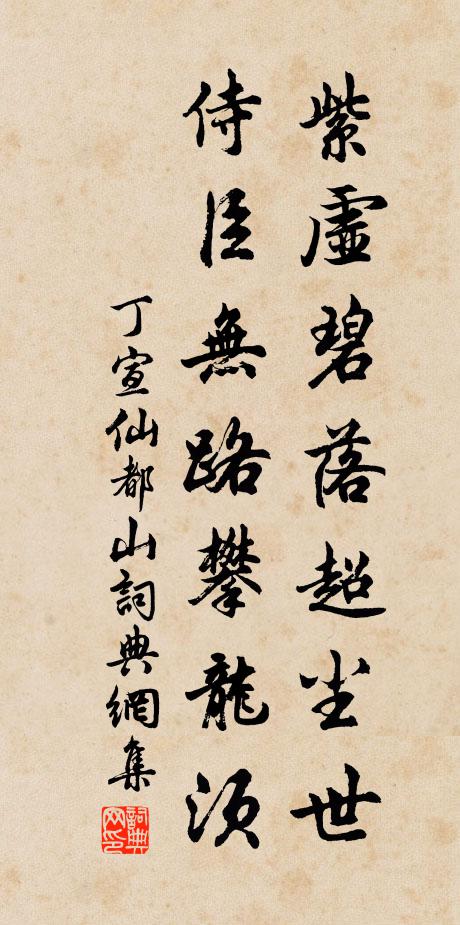 紫虛碧落超尘世
侍臣無路攀龍須
丁宣仙都山詞典網集
詞典
网印